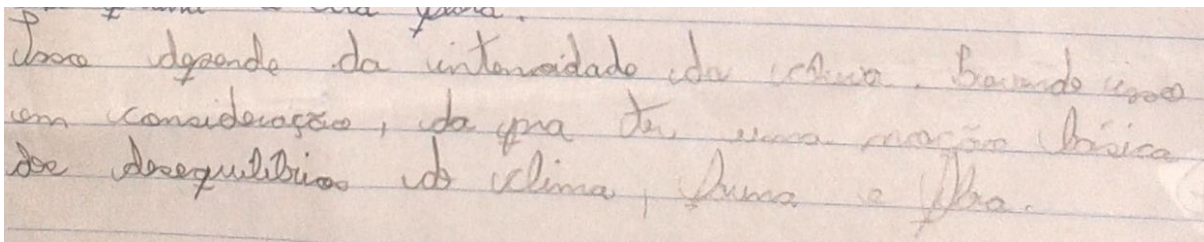 Isso depende da intensidade da chuva. Levando isso
em consideração, da pra ter uma noção básica
dos desequilibrios do clima, fauna e flora.